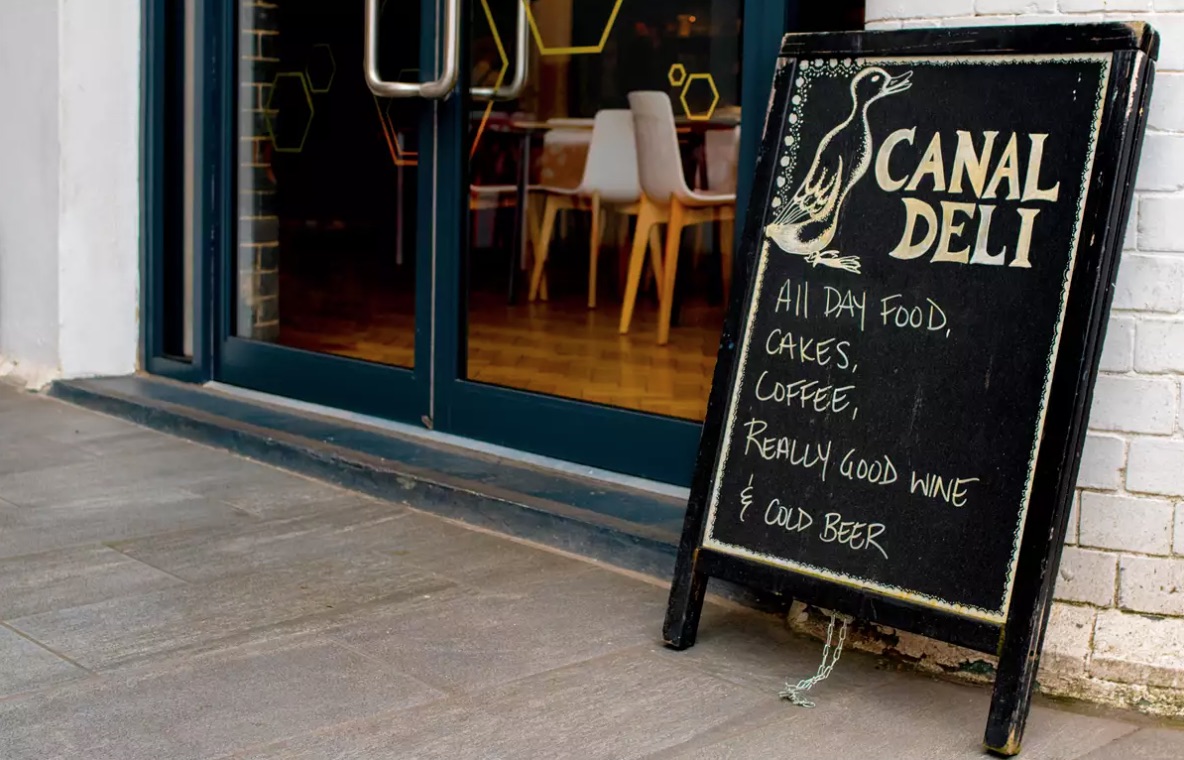 CANAL
DELI
All DAY FOOD,
CAKES,
COFFEE,
REALLY GOOD WINE
& COLD BEER